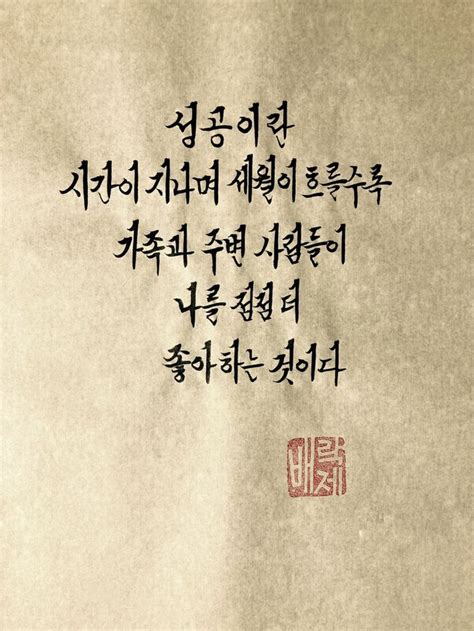 성공이란
시간이 지나며 세월이 흐를수록
가족과 주변 사람들이
나를 점점 더
좋아하는 것이다